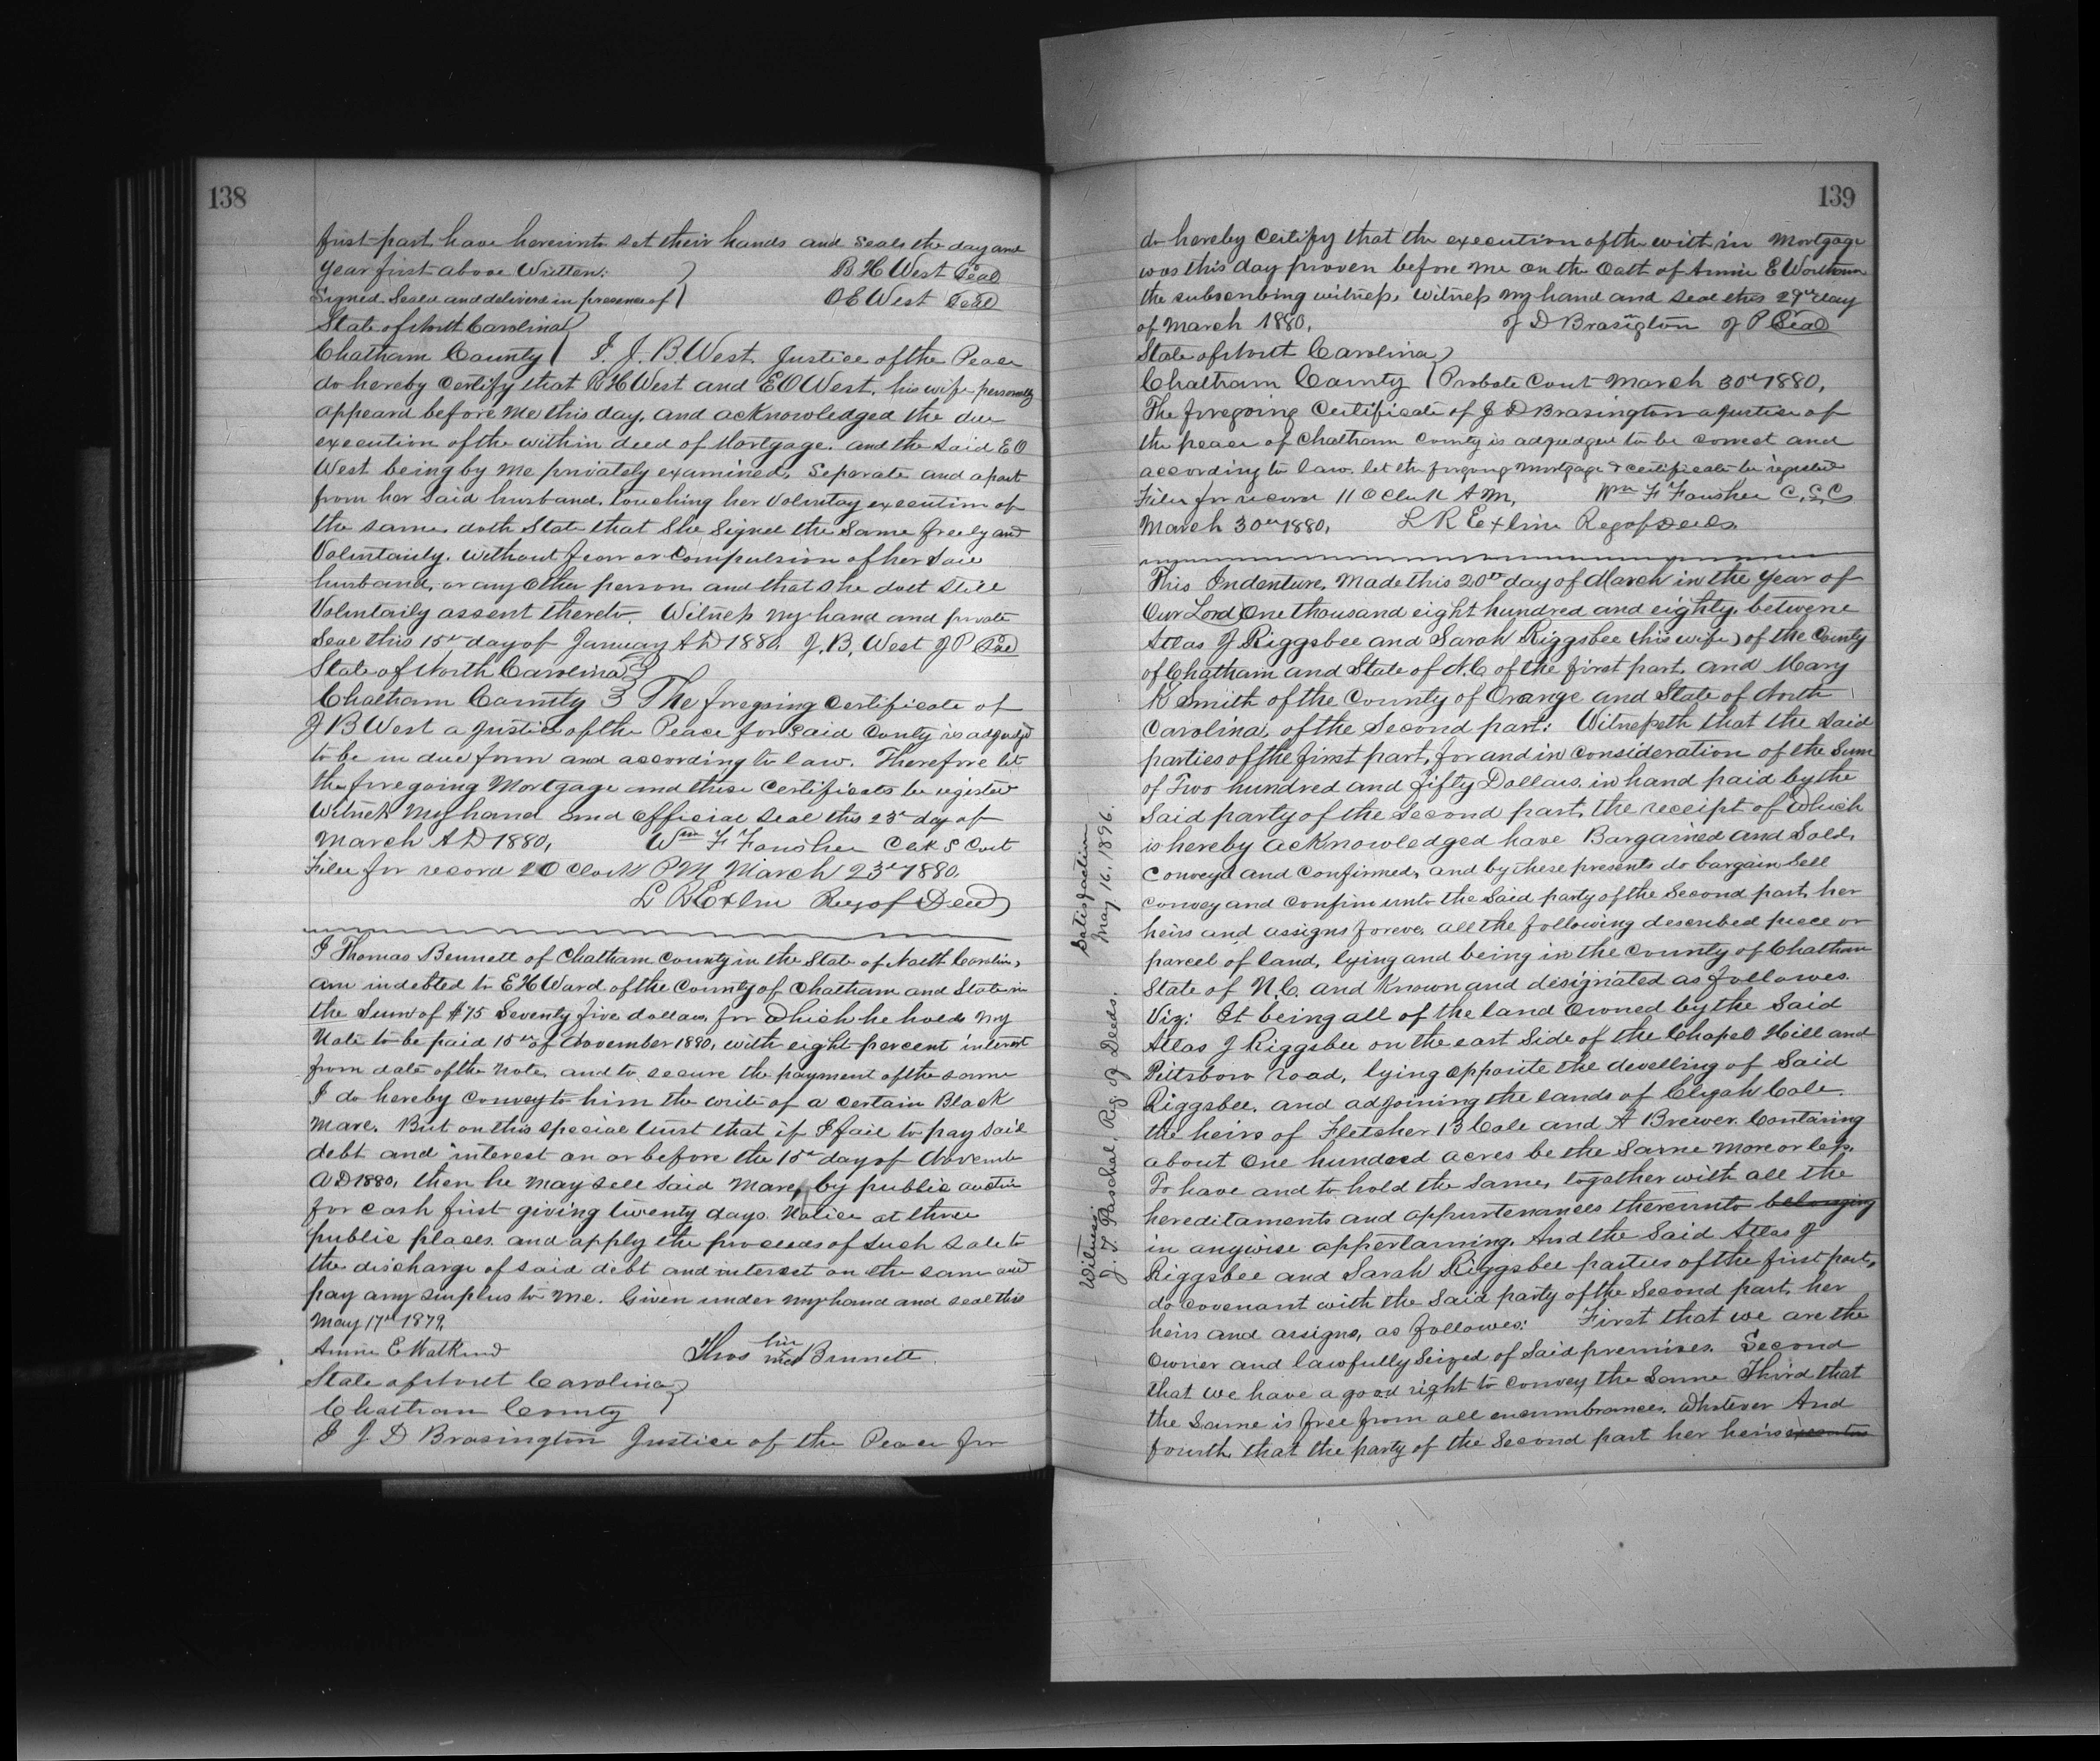 138
first part have hereunto set their hands and seals the day and
year first above Written. ) B H West Seal
Signed Seald and deliverd in presence of ) O E West Seal
State of North Carolina )
Chatham County ( I. J. B. West. Justice of the Peace
do hereby Certify that B H West and E O West, his wife personally
appeard before me this day, and acknowledged the due
execution of the within deed of Mortgage. and the said E O
West being by me privately examined, Separate and apart
from her said husband. touching her Voluntay execution of
the same doth State that She Signed the Same freely and
Voluntaily. without fear or Compulsion of her Said
husband, or any other person and that she doth Still
Voluntaily assent thereto. Witness my hand and private
Seal this 15th day of January A D 1880 J. B. West J P Seal
State of North Carolina 3
Chatham County 3 The foregoing Certificate of
J B West a Justice of the Peace for said County is adjudgd
to be in due form and according to law. Therefore let
the foregoing Mortgage and these Certificates be registerd
Witness My hand and official Seal this 23d day of
March A D 1880, Wm F Foushee Clk S Court
Filed for record 2 O Clock P M March 23d 1880.
L R Exline Reg of Deed
I Thomas Bennett of Chatham County in the State of North Carolina,
am indebted to E H Ward of the County of Chatham and State in
the Sum of $75 Seventy five dollars, for Which he holds my
Note to be paid 15th of November 1880, with eight percent interest
from date of the note and to secure the payment of the same
I do hereby convey to him the write of a certain Black
Mare. But on this special trust that if I fail to pay said
debt and interest on or before the 15th day of Novembr
A D 1880, then he may sell said Mare, by public auction
for cash first giving twenty days Notice at three
public places. and apply the proceeds of such sale to
the discharge of said debt and interest on the same and
pay any surplus to me. Given under my hand and seal this
May 17th 1879.
Annie E
Thos his X mark Bennett
State of North Carolina )
Chatham County )
I J D Brasington Justice of the Peace for
139
do hereby Certify that the execution of the with in Mortgage
was this day proven before me on the Oath of Annie E
the subscribing witness. Witness my hand and seal this 29th day
of March 1880. J D Brasington J P Seal
State of North Carolina )
Chatham County ( Probate Court March 30th 1880,
The foregoing Certificate of J D Brasington a justice of
the peace of Chatham County is adjudged to be correct and
according to law. let the forgoing Mortgage & certificate be registerd
Filed for record 11 O Clock A M, Wm F Foushee C. S. C
March 30th 1880, L R Exline Reg of Deeds
This Indenture, Made this 20th day of March in the Year of
Our Lord One thousand eight hundred and eighty, betwene
Atlas J Riggsbee and Sarah Riggsbee (his wife) of the County
of Chatham and State of N. C of the first part, and Mary
K Smith of the County of Orange and State of North
Carolina, of the Second part: Witnesseth that the said
parties of the first part, for and in consideration of the Sum
of Two hundred and fifty Dollars. in hand paid by the
Said party of the Second part, the receipt of Which
is hereby acknowledged have Bargained and Sold,
Conveyd and Confirmed, and by these presents do bargain Sell
convey and Confirm unto the Said party of the Second part, her
heirs and assigns forever, all the following described piece or
parcel of land, lying and being in the County of Chatham
State of N. C. and Known and designated as followes.
Viz: It being all of the land Owned by the Said
Atlas J Riggsbee on the east Side of the Chapel Hill and
Pittsboro road, lying opposite the dwelling of Said
Riggsbee. and adjoining the lands of Elijah Cole.
the heirs of Fletcher B Cole and A Brewer. Containing
about One hundred acres be the Same More or less.
To have and to hold the same, together with all the
hereditaments and appurtenances thereunto belonging
in anywise appertaining. And the Said Atlas J
Riggsbee and Sarah Riggsbee parties of the first part,
do covenant with the Said party of the Second part, her
heirs and assigns, as followes: First that we are the
Owner and lawfully Seized of Said premises. Second
that we have a good right to Convey the Same Third that
the Same is free from all encumbrances. Whatever And
fourth, that the party of the Second part her heirs executors
Satisfaction
May 16, 1896.
Witness:
J. T. Paschal, Reg of Deeds.